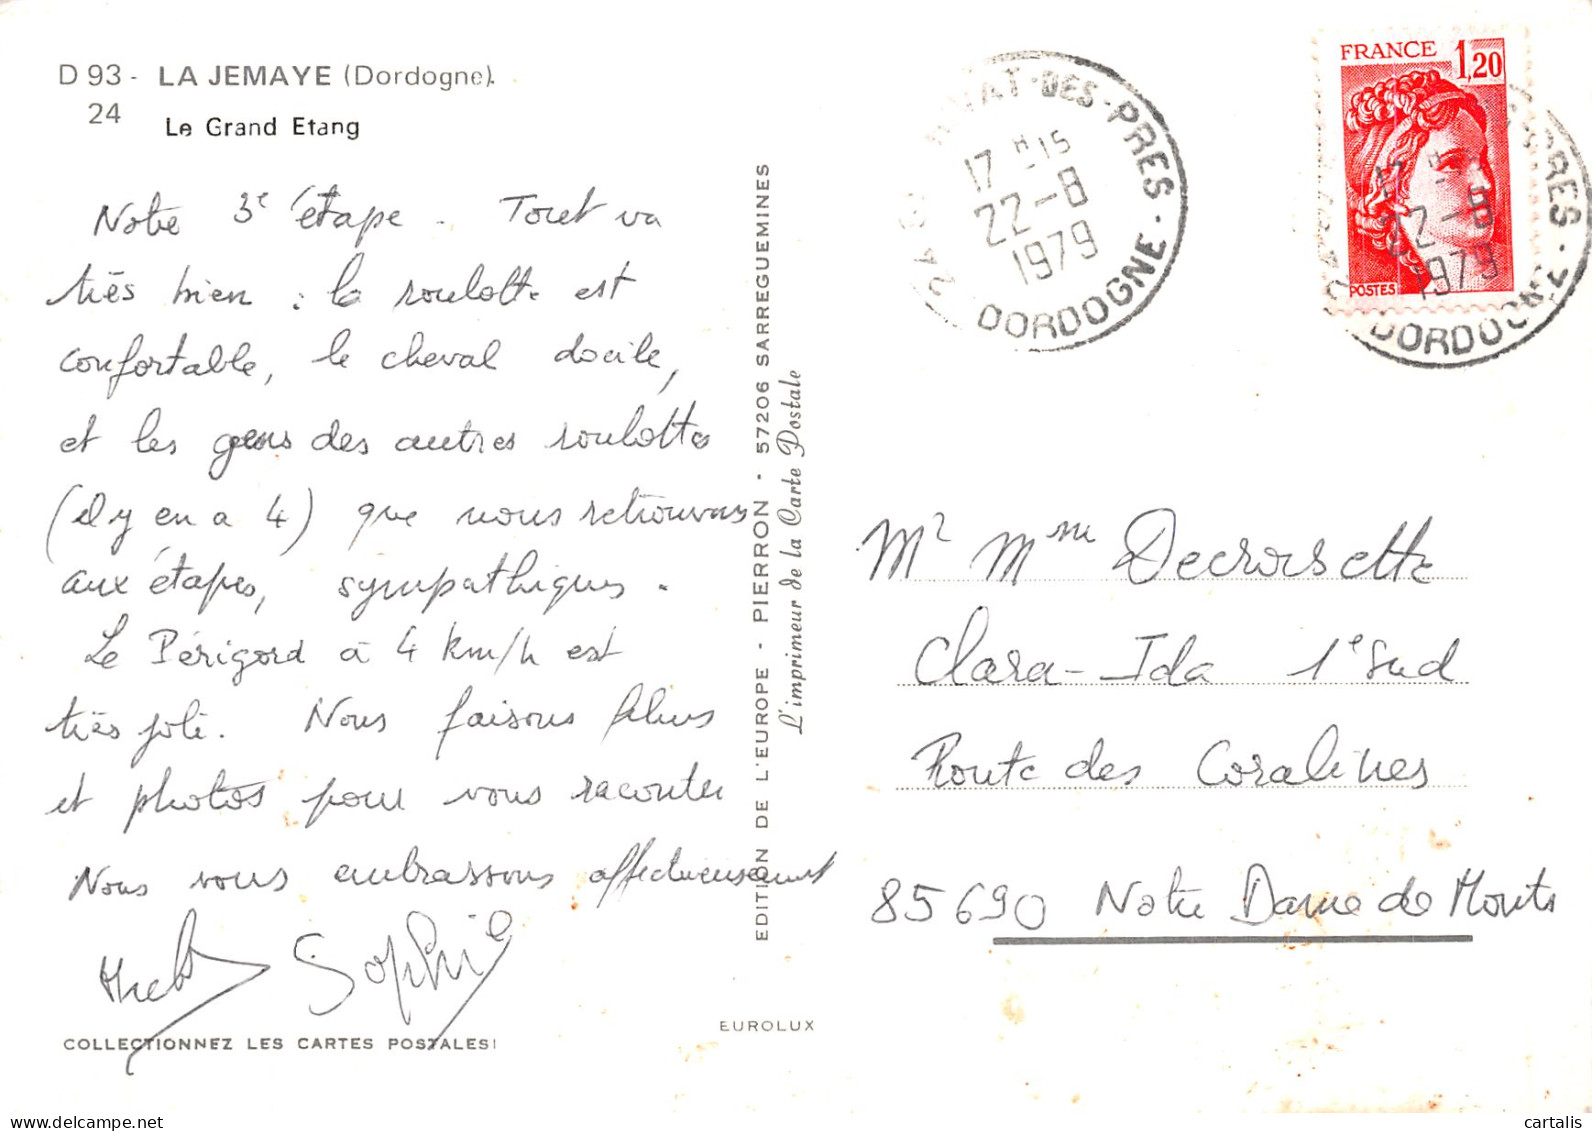 D 93 - LA JEMAYE (Dordogne).
24
Le Grand Etang
Notre 3e étape. Tout va
très bien : la roulotte est
confortable, le cheval docile,
et les gens des autres roulottes
(il y en a 4) que nous retrouvons
aux étapes, sympathiques.
Le Périgord à 4 km/h est
très joli. Nous faisons films
et photos pour vous raconter
Nous vous embrassons affectueusement
Sophie
COLLECTIONNEZ LES CARTES POSTALES!
EDITION DE L'EUROPE - PIERRON - 57206 SARREGUEMINES
L'imprimeur de la Carte Postale
EUROLUX
DES-PRES
17 H 15
22-8
1979
24
DORDOGNE
FRANCE 1,20
POSTES
PRES
22-8
1979
DORDOGNE
Mr Mme Decroisette
Clara-Ida 1e Sud
Route des Coralines
85690 Notre Dame de Monts
cartalis